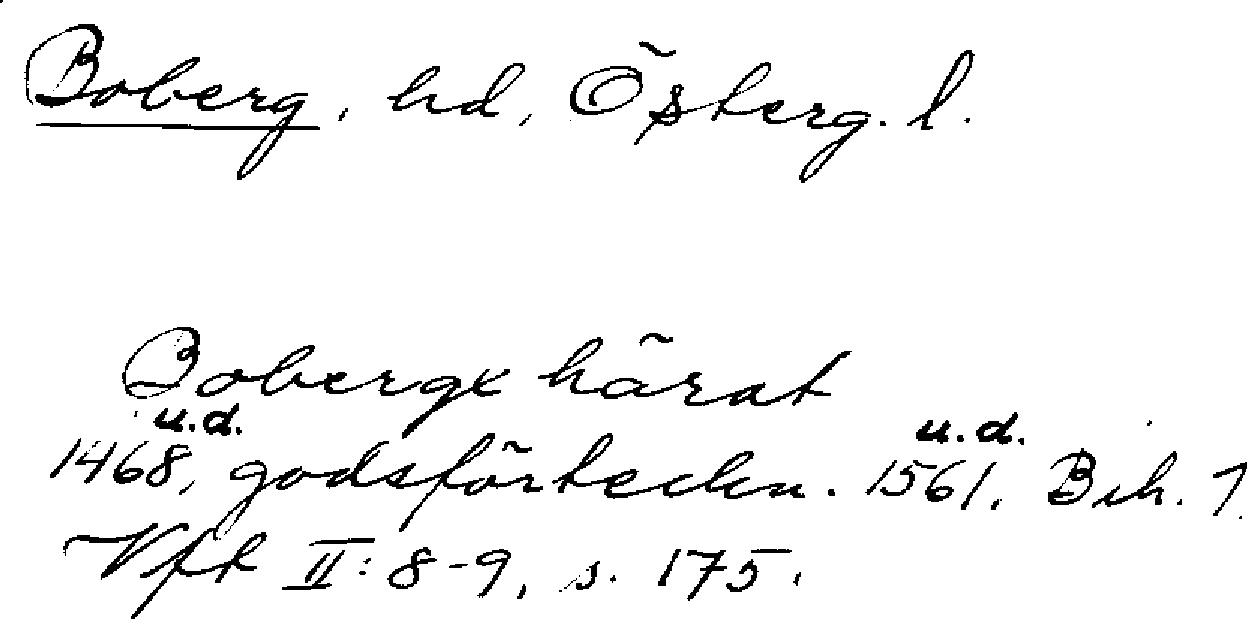 Boberg, hd, Östberg. l.
Bobergx härat
u.d. u.d.
1468, godsförteckn. 1561, Bih. 1
Vft II: 8-9, s. 175.